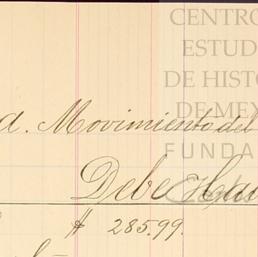 CENTRO
ESTUD
DE HISTO
DE MEX
FUNDA
a. Movimiento del
Debe Ha
$ 285.99.